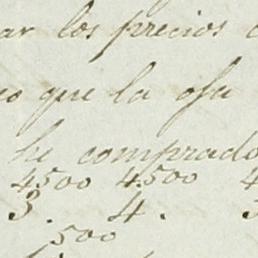 ar los precios
que la osa
he comprado
4500 4.500 4
3. 4. 3
500